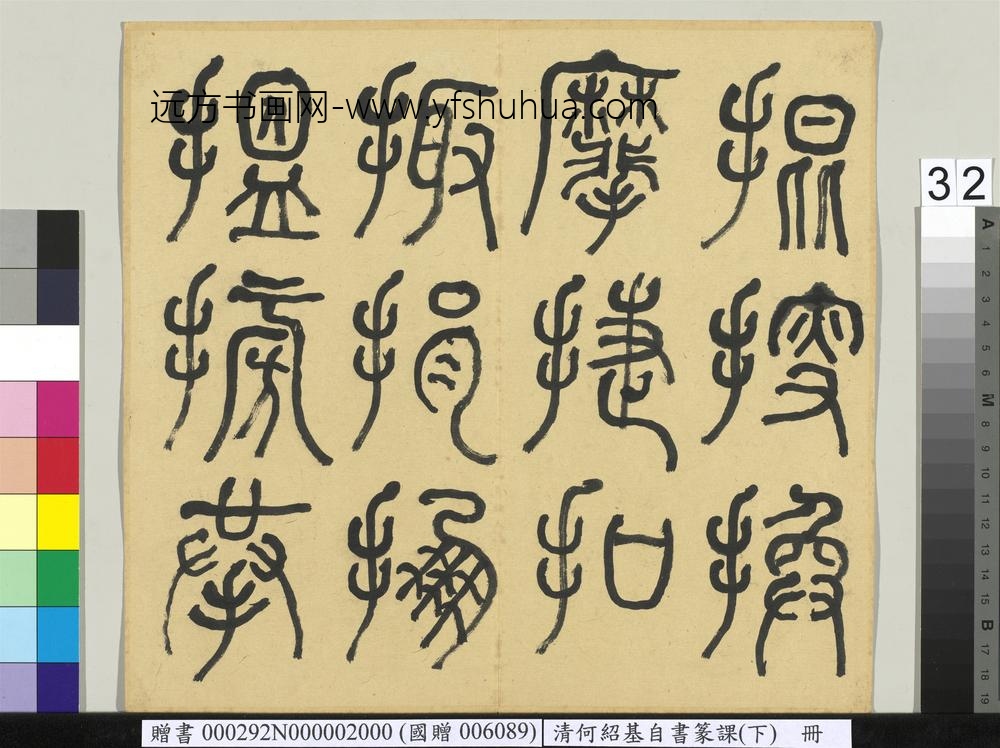 搵搒拲
掫捐掤
摩捷扣
掍搜換
远方书画网-www.yfshuhua.com
32
A 1 2 3 4 5 6 M 8 9 10 11 12 13 14 15 B 17 18 19
贈書 000292N000002000 (國贈 006089) 清何紹基自書篆課(下) 冊